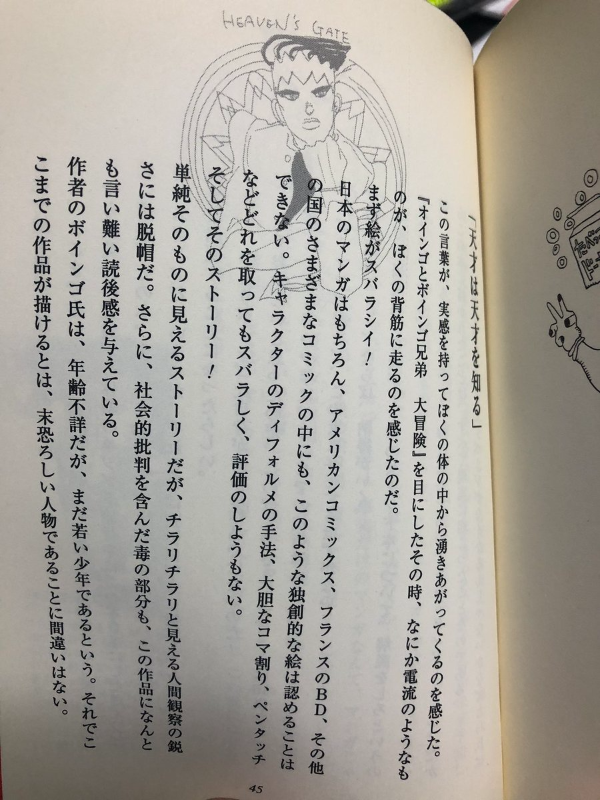 HEAVEN'S GATE
「天才は天才を知る」
この言葉が、実感を持ってぼくの体の中から湧きあがってくるのを感じた。
『オインゴとボインゴ兄弟　大冒険』を目にしたその時、なにか電流のようなも
のが、ぼくの背筋に走るのを感じたのだ。
まず絵がスバラシイ！
日本のマンガはもちろん、アメリカンコミックス、フランスのＢＤ、その他
の国のさまざまなコミックの中にも、このような独創的な絵は認めることは
できない。キャラクターのディフォルメの手法、大胆なコマ割り、ペンタッチ
などどれを取ってもスバラしく、評価のしようもない。
そしてそのストーリー！
単純そのものに見えるストーリーだが、チラリチラリと見える人間観察の鋭
さには脱帽だ。さらに、社会的批判を含んだ毒の部分も、この作品になんと
も言い難い読後感を与えている。
作者のボインゴ氏は、年齢不詳だが、まだ若い少年であるという。それでこ
こまでの作品が描けるとは、末恐ろしい人物であることに間違いはない。
45